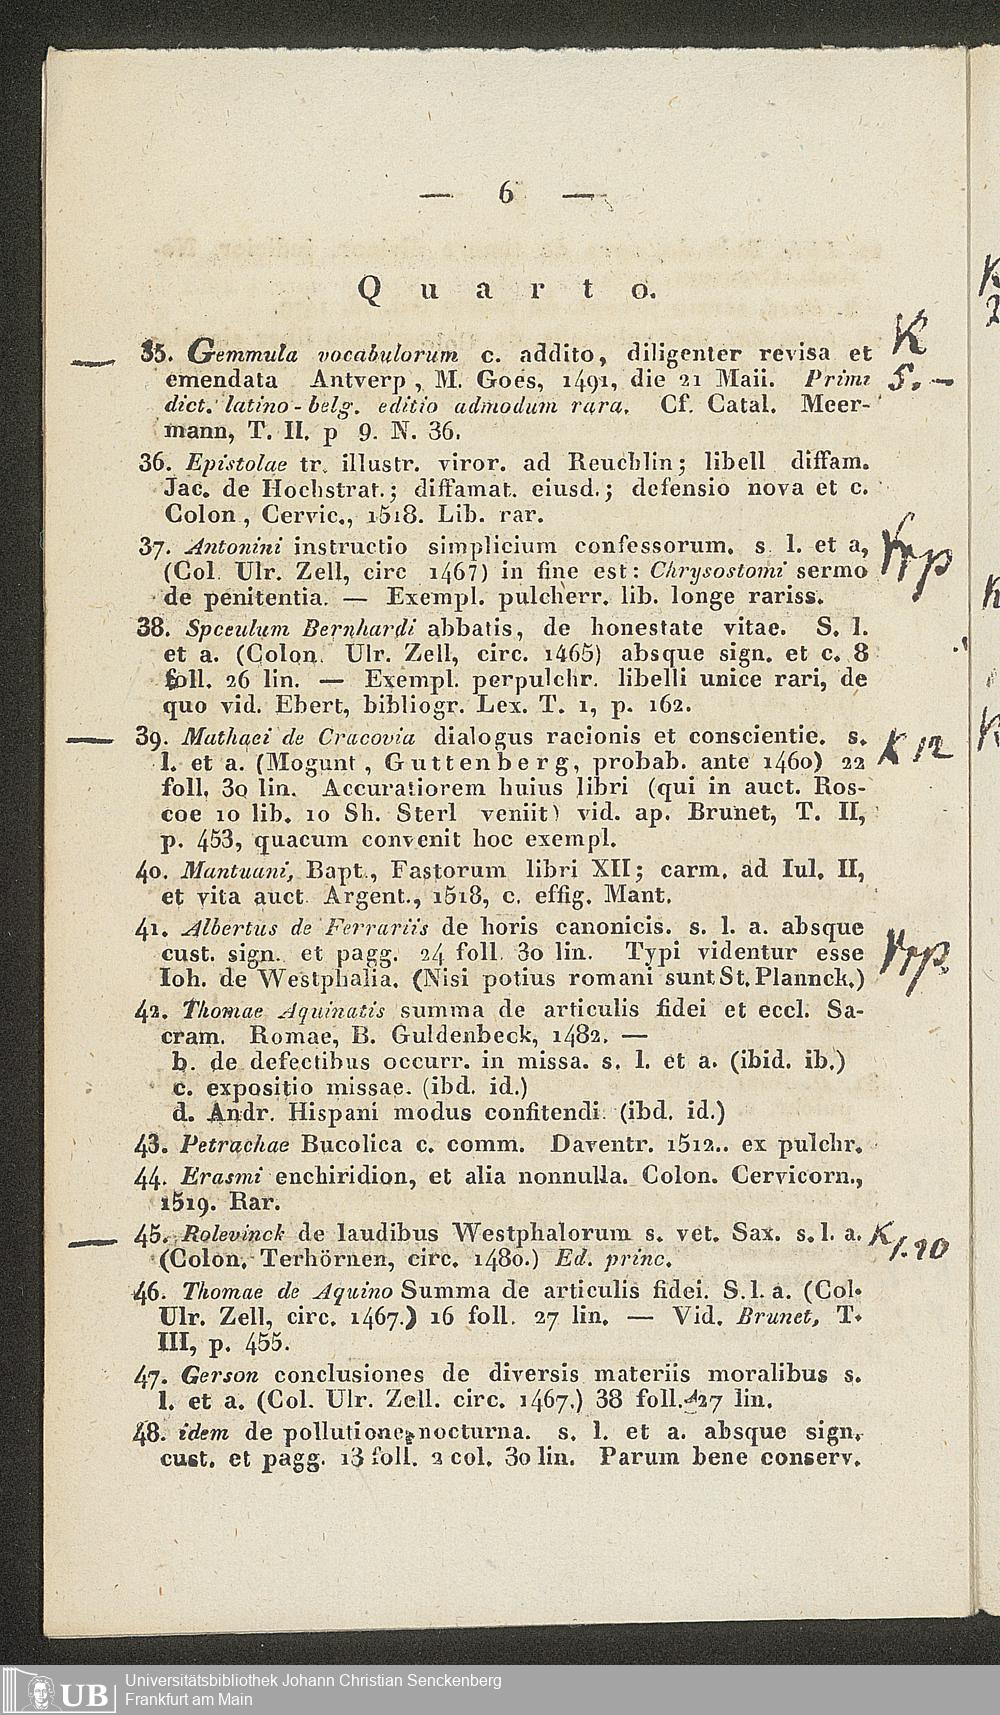 — 6 —
Quarto.
35. Gemmula vocabulorum c. addito, diligenter revisa et K
emendata Antverp , M. Goes, 1491, die 21 Maii. Primi 5. –
dict. latino-belg. editio admodum rara. Cf. Catal. Meer-
mann, T. II. p 9. N. 36.
36. Epistolae tr. illustr. viror. ad Reuchlin; libell diffam.
Jac. de Hochstrat.; diffamat. eiusd.; defensio nova et c.
Colon , Cervic., 1518. Lib. rar.
37. Antonini instructio simplicium confessorum. s. l. et a,
(Col. Ulr. Zell, circ 1467) in fine est: Chrysostomi sermo
de penitentia. — Exempl. pulcherr. lib. longe rariss.
38. Speculum Bernhardi abbatis, de honestate vitae. S. l.
et a. (Colon. Ulr. Zell, circ. 1465) absque sign. et c. 8
foll. 26 lin. — Exempl. perpulchr. libelli unice rari, de
quo vid. Ebert, bibliogr. Lex. T. 1, p. 162.
39. Mathaei de Cracovia dialogus racionis et conscientie. s.
l. et a. (Mogunt , Guttenberg, probab. ante 1460) 22 K 12
foll. 30 lin. Accuratiorem huius libri (qui in auct. Ros-
coe 10 lib. 10 Sh. Sterl veniit) vid. ap. Brunet, T. II,
p. 453, quacum convenit hoc exempl.
40. Mantuani, Bapt., Fastorum libri XII; carm. ad Iul. II,
et vita auct. Argent., 1518, c. effig. Mant.
41. Albertus de Ferrariis de horis canonicis. s. l. a. absque
cust. sign. et pagg. 24 foll. 30 lin. Typi videntur esse
Ioh. de Westphalia. (Nisi potius romani sunt St. Plannck.)
42. Thomae Aquinatis summa de articulis fidei et eccl. Sa-
cram. Romae, B. Guldenbeck, 1482. —
b. de defectibus occurr. in missa. s. l. et a. (ibid. ib.)
c. expositio missae. (ibd. id.)
d. Andr. Hispani modus confitendi. (ibd. id.)
43. Petrachae Bucolica c. comm. Daventr. 1512.. ex pulchr.
44. Erasmi enchiridion, et alia nonnulla. Colon. Cervicorn.,
1519. Rar.
45. Rolevinck de laudibus Westphalorum s. vet. Sax. s. l. a. K
(Colon. Terhörnen, circ. 1480.) Ed. princ. 1.20
46. Thomae de Aquino Summa de articulis fidei. S. l. a. (Col.
Ulr. Zell, circ. 1467.) 16 foll. 27 lin. — Vid. Brunet, T.
III, p. 455.
47. Gerson conclusiones de diversis materiis moralibus s.
l. et a. (Col. Ulr. Zell. circ. 1467.) 38 foll. 27 lin.
48. idem de pollutione nocturna. s. l. et a. absque sign.
cust. et pagg. 13 foll. 2 col. 30 lin. Parum bene conserv.
UB Universitätsbibliothek Johann Christian Senckenberg
Frankfurt am Main